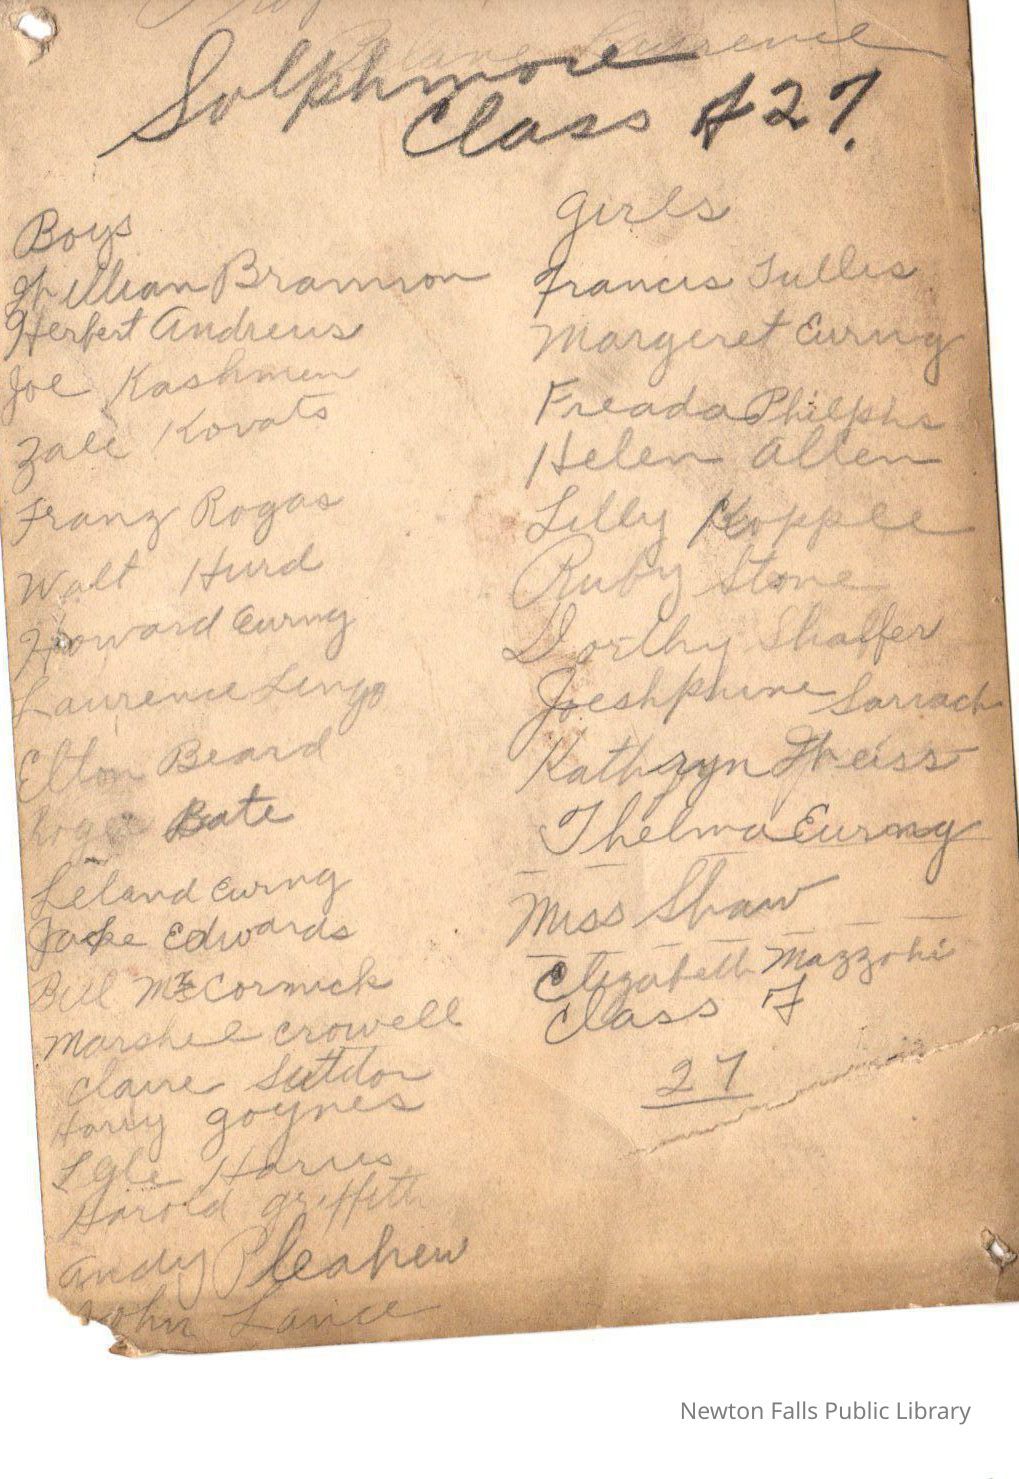 Lawrence
Solphmore
Class of 27.
Boys
William Brannon
Herbert Andrews
Joe Kashmen
Zale Kovats
Franz Rogas
Walt Hurd
Howard Eurng
Laurence Lingo
Elton Beard
Roger Bate
Leland Eurng
Jake Edwards
Bill McCormick
Marshel Crowell
Claire Sutdor
Harry Goynes
Lyle Harris
Harold Griffeth
Andy Pleahew
John Lance
Girls
Francis Tullis
Margeret Eurng
Freada Philphs
Helen Allen
Lilly Kopple
Ruby Stone
Dorthy Shaffer
Joeshphine Sarrach
Kathryn Weiss
Thelma Eurng
Miss Shaw
Elizabeth Mazzohi
Class of
27
Newton Falls Public Library